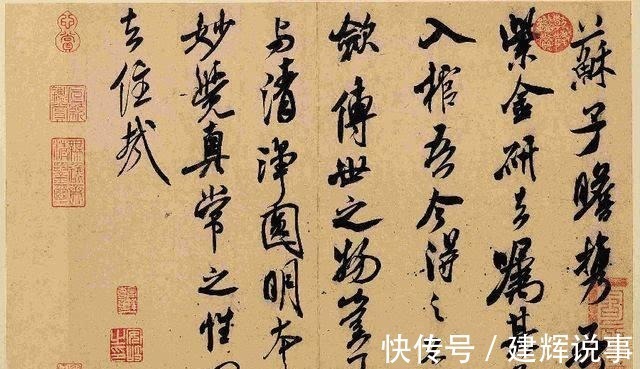 蘇子瞻携
紫金研去嘱其
入棺吾今得之
歛傳世之物豈
与清淨圓明本
妙覺真常之性
去住哉
快传号 / 建辉说事